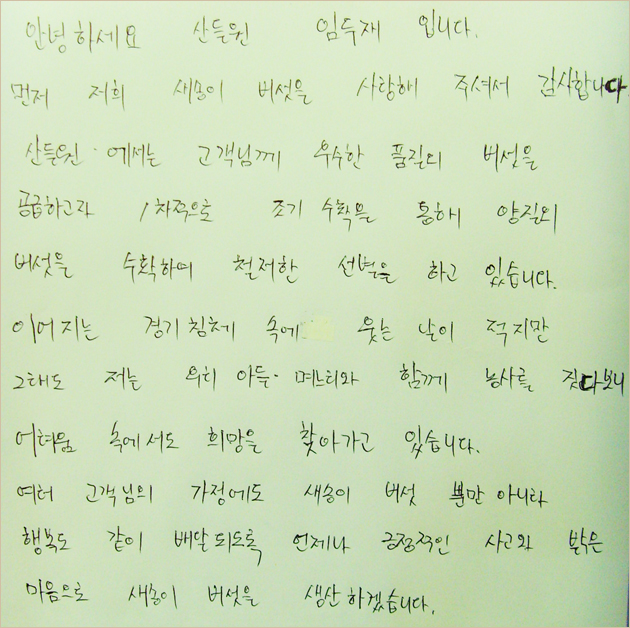 안녕하세요 산들원 임두재 입니다.
먼저 저희 새송이 버섯을 사랑해 주셔서 감사합니다
산들원 에서는 고객님께 우수한 품질의 버섯을
공급하고자 1차적으로 조기 수확을 통해 양질의
버섯을 수확하며 철저한 선별을 하고 있습니다.
이어지는 경기침체 속에 웃는 날이 적지만
그래도 저는 우리 아들· 며느리와 함께 농사를 짓다보니
어려움 속에서도 희망을 찾아가고 있습니다.
여러 고객님의 가정에도 새송이 버섯 뿐만 아니라
행복도 같이 배달되도록 언제나 긍정적인 사고와 밝은
마음으로 새송이 버섯을 생산하겠습니다.